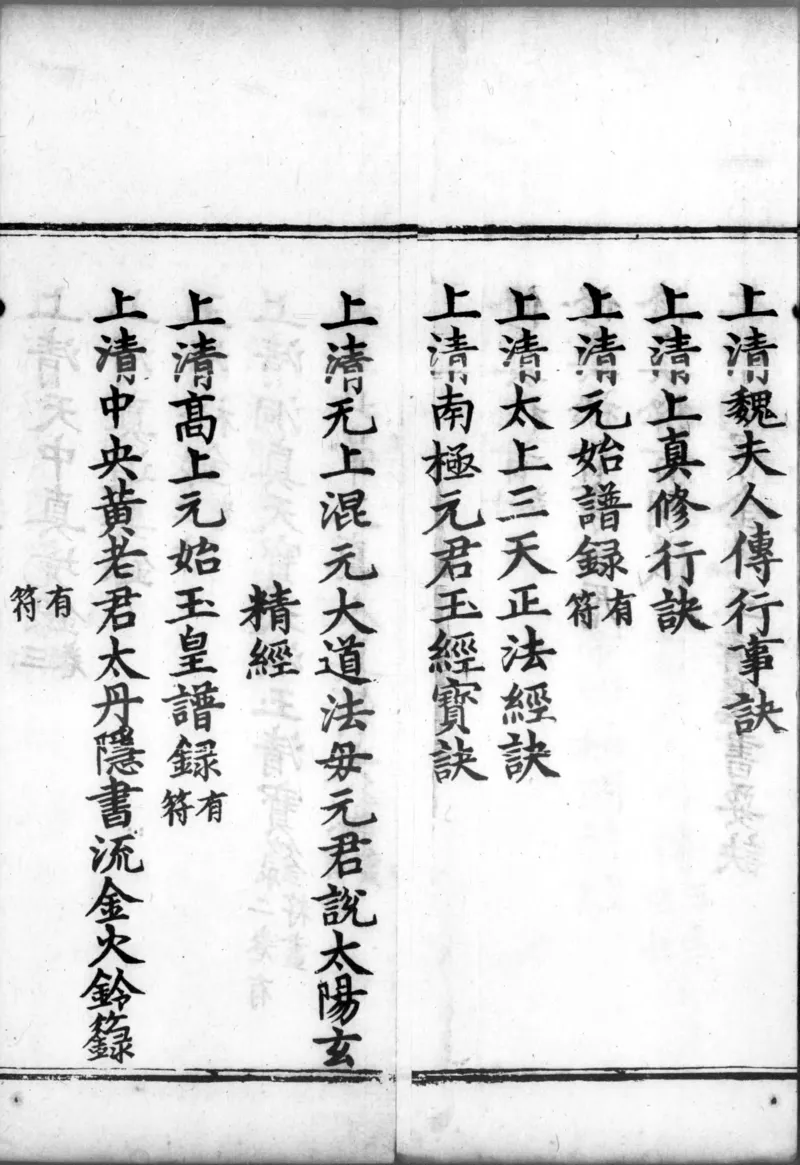 上清魏夫人傳行事訣
上清上真修行訣
上清元始譜録有符
上清太上三天正法經訣
上清南極元君玉經寳訣
上清无上混元大道法毋元君說太陽玄
精經
上清髙上元始玉皇譜録有符
上清中央黄老君太丹隱書流金火鈴籙
有符